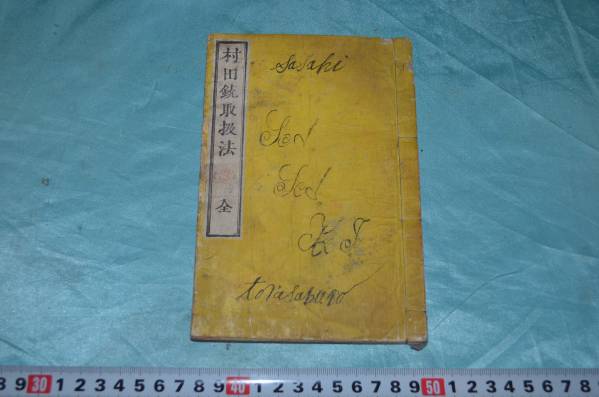 村田銃取扱法 全
sasaki
K J
torasaburo
8 9 30 1 2 3 4 5 6 7 8 9 40 1 2 3 4 5 6 7 8 9 50 1 2 3 4 5 6 7 8